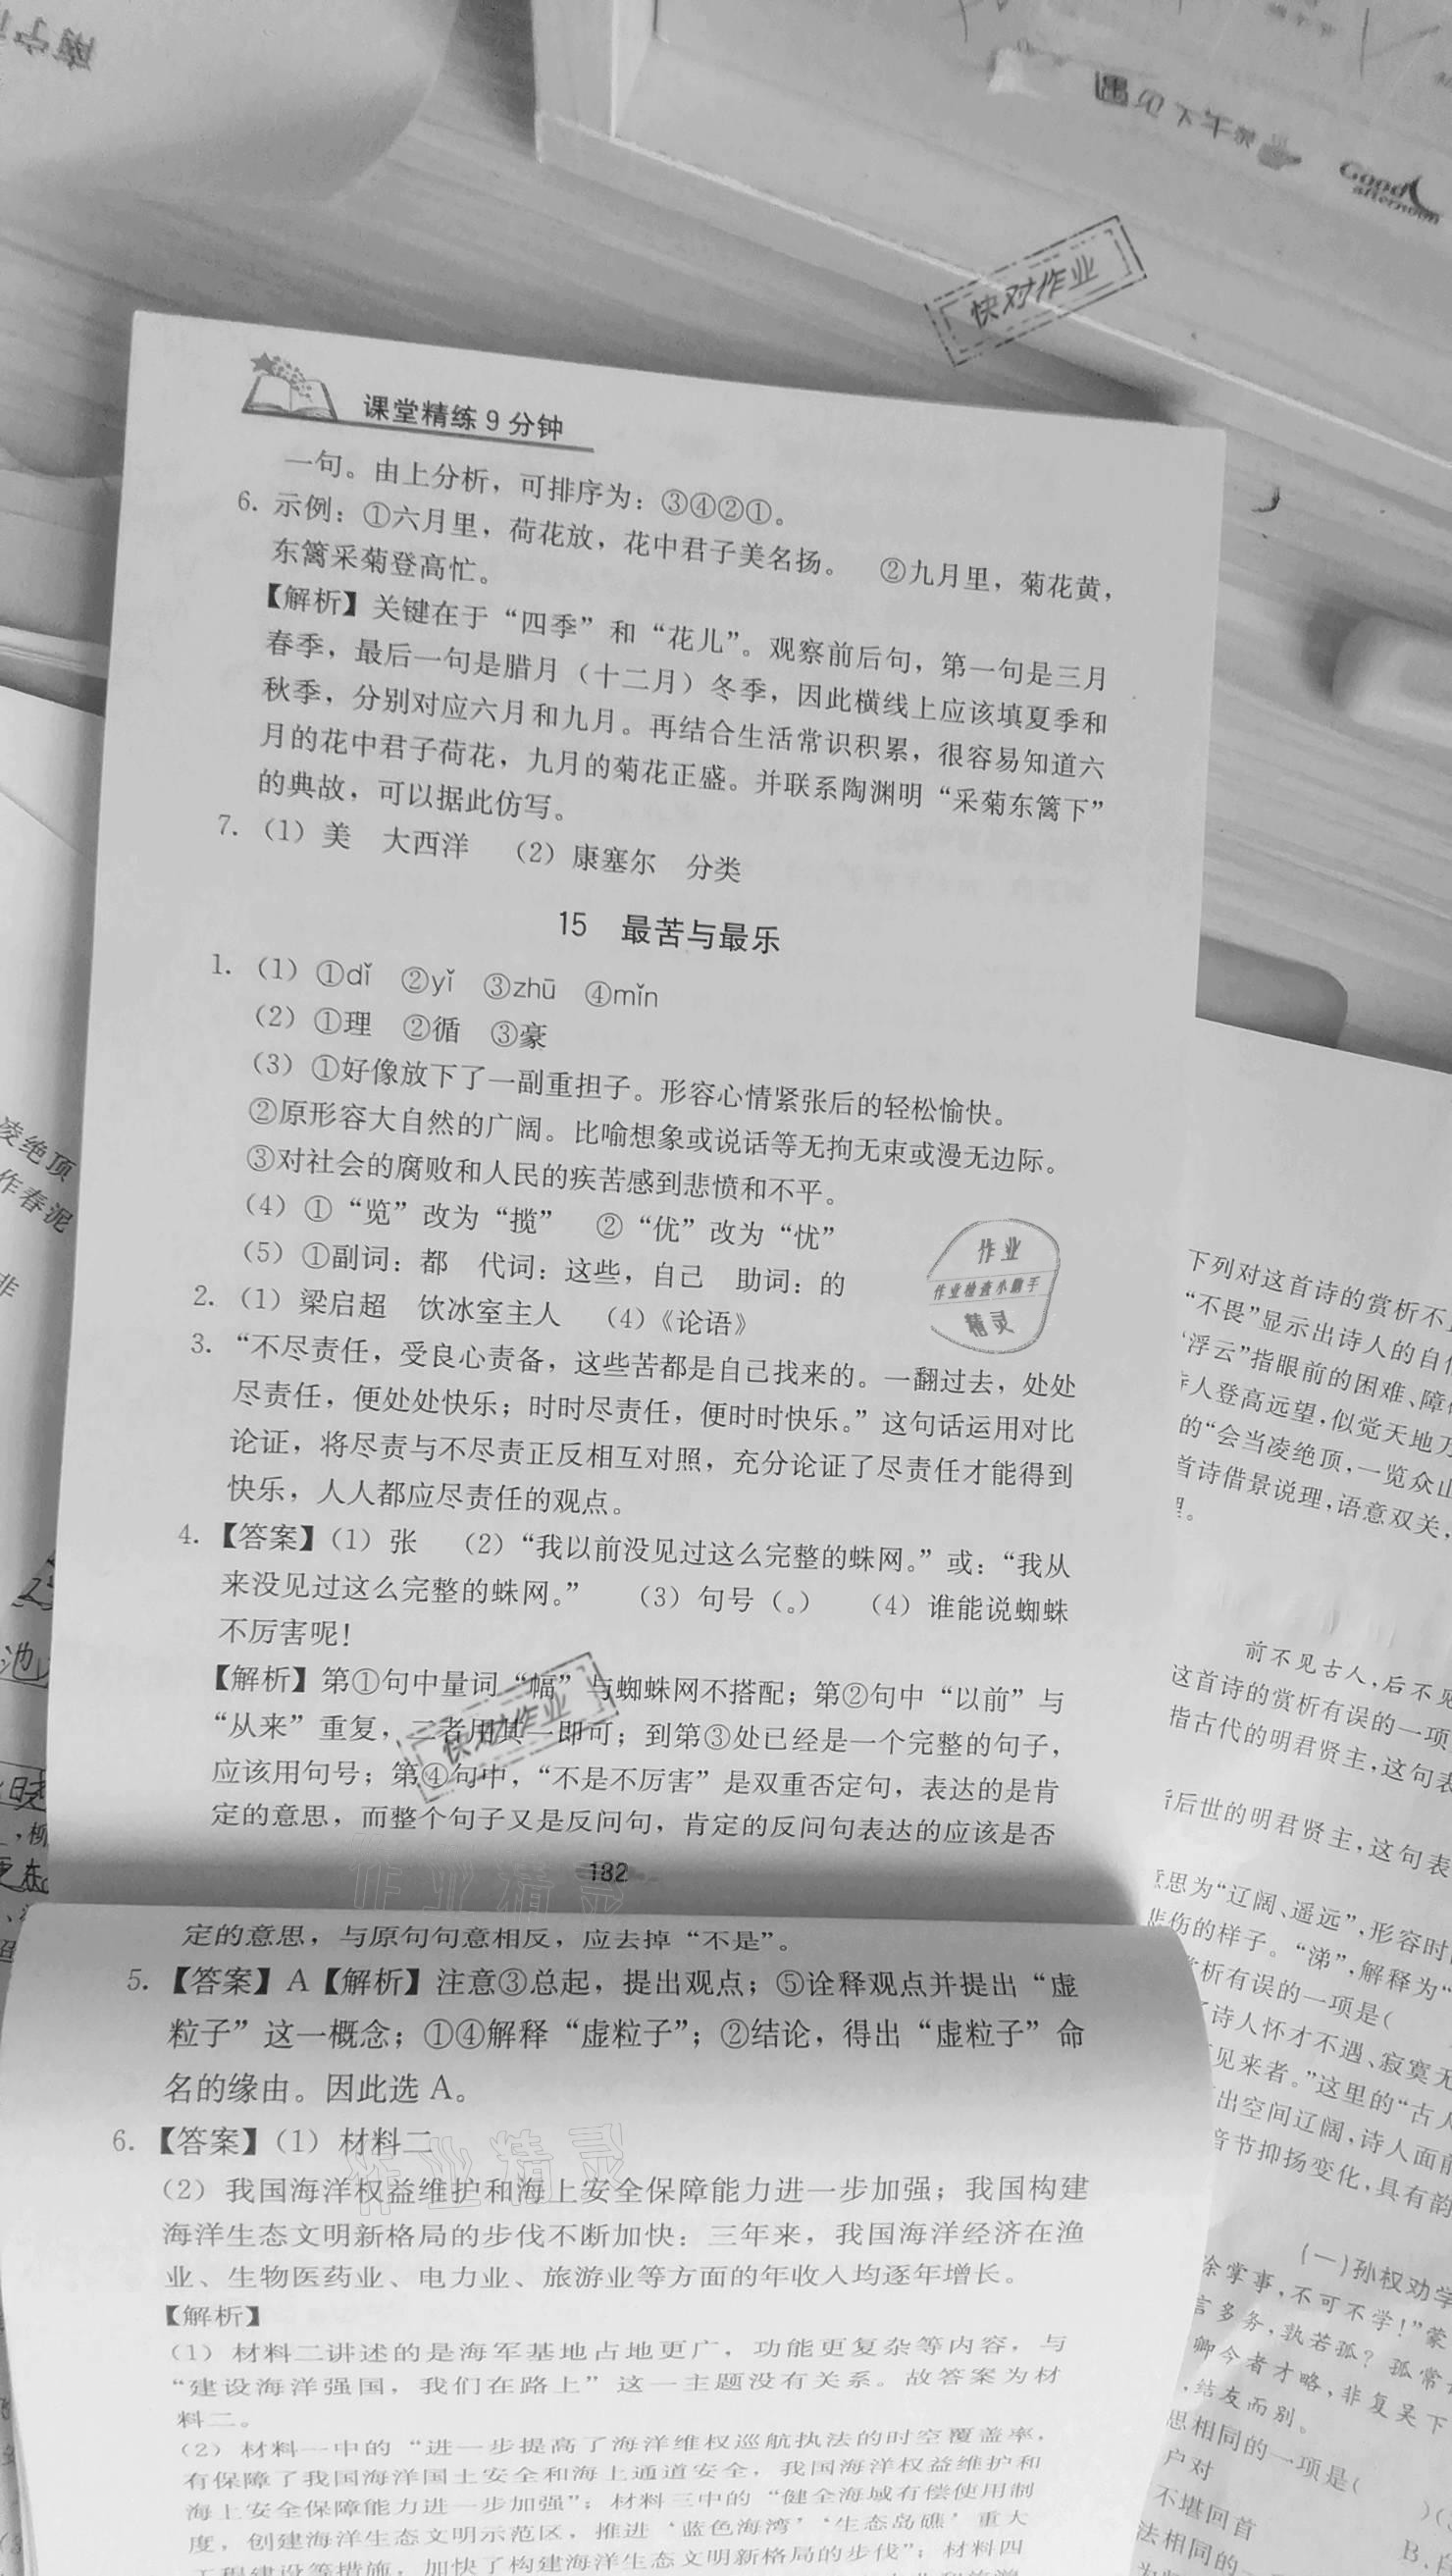 南宁
遇见下午茶
Good
afternoon
快对作业
课堂精练9分钟
一句。由上分析，可排序为：③④②①。
6. 示例：①六月里，荷花放，花中君子美名扬。 ②九月里，菊花黄，
东篱采菊登高忙。
【解析】关键在于“四季”和“花儿”。观察前后句，第一句是三月
春季，最后一句是腊月（十二月）冬季，因此横线上应该填夏季和
秋季，分别对应六月和九月。再结合生活常识积累，很容易知道六
月的花中君子荷花，九月的菊花正盛。并联系陶渊明“采菊东篱下”
的典故，可以据此仿写。
7. （1）美 大西洋 （2）康塞尔 分类
15 最苦与最乐
1. （1）①dǐ ②yǐ ③zhū ④mǐn
（2）①理 ②循 ③豪
（3）①好像放下了一副重担子。形容心情紧张后的轻松愉快。
②原形容大自然的广阔。比喻想象或说话等无拘无束或漫无边际。
③对社会的腐败和人民的疾苦感到悲愤和不平。
（4）①“览”改为“揽” ②“优”改为“忧”
（5）①副词：都 代词：这些，自己 助词：的
2. （1）梁启超 饮冰室主人 （4）《论语》
3. “不尽责任，受良心责备，这些苦都是自己找来的。一翻过去，处处
尽责任，便处处快乐；时时尽责任，便时时快乐。”这句话运用对比
论证，将尽责与不尽责正反相互对照，充分论证了尽责任才能得到
快乐，人人都应尽责任的观点。
4. 【答案】（1）张 （2）“我以前没见过这么完整的蛛网。”或：“我从
来没见过这么完整的蛛网。” （3）句号（。） （4）谁能说蜘蛛
不厉害呢！
【解析】第①句中量词“幅”与蜘蛛网不搭配；第②句中“以前”与
“从来”重复，二者用其一即可；到第③处已经是一个完整的句子，
应该用句号；第④句中，“不是不厉害”是双重否定句，表达的是肯
定的意思，而整个句子又是反问句，肯定的反问句表达的应该是否
132
作业
作业检查小助手
精灵
快对作业
作业精灵
定的意思，与原句句意相反，应去掉“不是”。
5. 【答案】A【解析】注意③总起，提出观点；⑤诠释观点并提出“虚
粒子”这一概念；①④解释“虚粒子”；②结论，得出“虚粒子”命
名的缘由。因此选 A。
6. 【答案】（1）材料二
（2）我国海洋权益维护和海上安全保障能力进一步加强；我国构建
海洋生态文明新格局的步伐不断加快；三年来，我国海洋经济在渔
业、生物医药业、电力业、旅游业等方面的年收入均逐年增长。
【解析】
（1）材料二讲述的是海军基地占地更广，功能更复杂等内容，与
“建设海洋强国，我们在路上”这一主题没有关系。故答案为材
料二。
（2）材料一中的“进一步提高了海洋维权巡航执法的时空覆盖率，
有保障了我国海洋国土安全和海上通道安全，我国海洋权益维护和
海上安全保障能力进一步加强”；材料三中的“健全海域有偿使用制
度，创建海洋生态文明示范区，推进‘蓝色海湾’‘生态岛礁’重大
工程建设等措施，加快了构建海洋生态文明新格局的步伐”；材料四
作业精灵
凌绝顶
作春泥
非
下列对这首诗的赏析不
“不畏”显示出诗人的自
“浮云”指眼前的困难、障
人登高远望，似觉天地
的“会当凌绝顶，一览众山
首诗借景说理，语意双关，
理。
前不见古人，后不见
这首诗的赏析有误的一项
指古代的明君贤主，这句表
后世的明君贤主，这句表
意思为“辽阔、遥远”，形容时
悲伤的样子。“涕”，解释为“
赏析有误的一项是(
了诗人怀才不遇、寂寞无
见来者。”这里的“古人
出空间辽阔，诗人面前
音节抑扬变化，具有韵
(一)孙权劝学
涂掌事，不可不学！”蒙
言多务，孰若孤？孤常
卿今者才略，非复吴下
，结友而别。
思相同的一项是(
户对
不堪回首
法相同的一